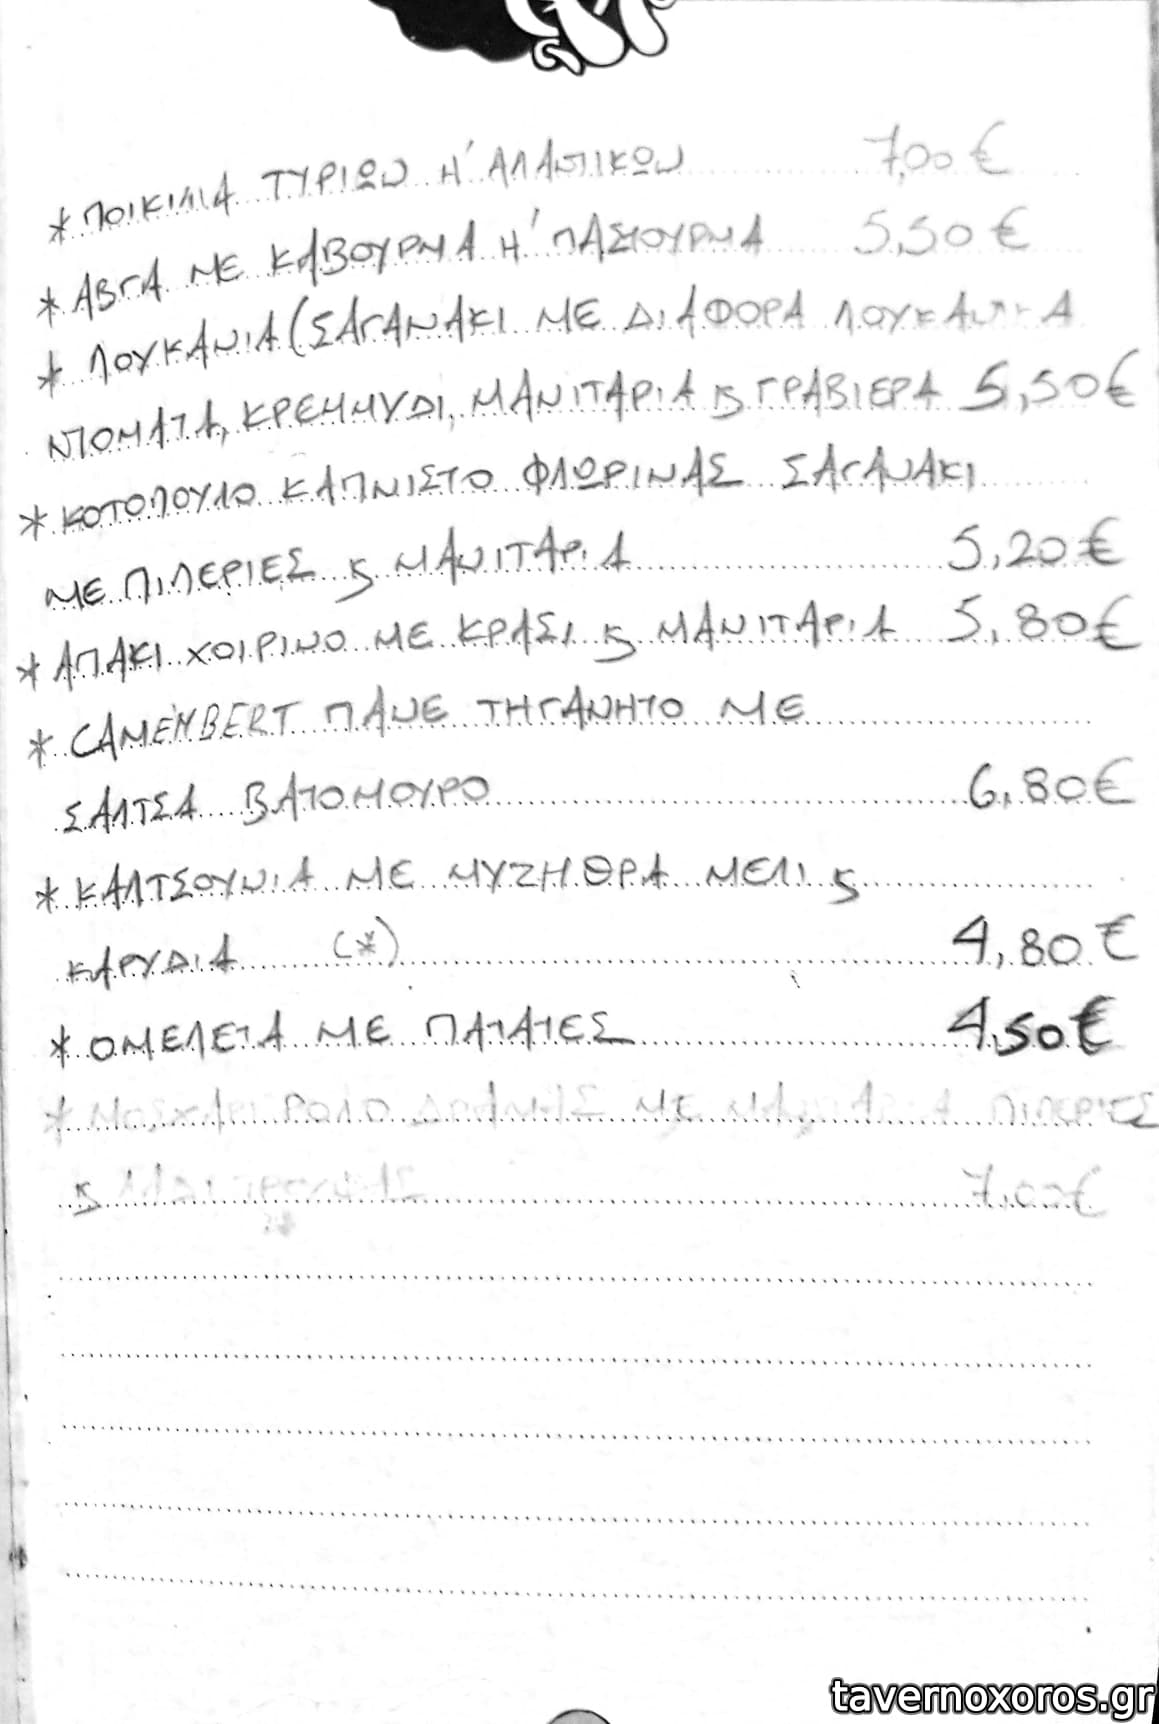 * ΠΟΙΚΙΛΙΑ ΤΥΡΙΩΝ Η' ΑΛΑΝΤΙΚΩΝ 7,00 €
* ΑΒΓΑ ΜΕ ΚΑΒΟΥΡΜΑ Η' ΠΑΣΤΟΥΡΜΑ 5,50 €
* ΛΟΥΚΑΝΙΑ (ΣΑΓΑΝΑΚΙ ΜΕ ΔΙΑΦΟΡΑ ΛΟΥΚΑΝΙΚΑ
ΝΤΟΜΑΤΑ, ΚΡΕΜΜΥΔΙ, ΜΑΝΙΤΑΡΙΑ ϗ ΓΡΑΒΙΕΡΑ 5,50€
* ΚΟΤΟΠΟΥΛΟ ΚΑΠΝΙΣΤΟ ΦΛΩΡΙΝΑΣ ΣΑΓΑΝΑΚΙ
ΜΕ ΠΙΠΕΡΙΕΣ ϗ ΜΑΝΙΤΑΡΙΑ 5,20€
* ΑΠΑΚΙ ΧΟΙΡΙΝΟ ΜΕ ΚΡΑΣΙ ϗ ΜΑΝΙΤΑΡΙΑ 5,80€
* CAMEMBERT ΠΑΝΕ ΤΗΓΑΝΗΤΟ ΜΕ
ΣΑΛΤΣΑ ΒΑΤΟΜΟΥΡΟ 6,80€
* ΚΑΛΤΣΟΥΝΙΑ ΜΕ ΜΥΖΗΘΡΑ ΜΕΛΙ ϗ
ΚΑΡΥΔΙΑ (*) 4,80 €
* ΟΜΕΛΕΤΑ ΜΕ ΠΑΤΑΤΕΣ 4,50€
* ΜΟΣΧΑΡΙ ΡΟΛΟ ΔΡΑΜΑΣ ΜΕ ΜΑΝΙΤΑΡΙΑ ΠΙΠΕΡΙΕΣ
ϗ 7,00€
tavernoxoros.gr